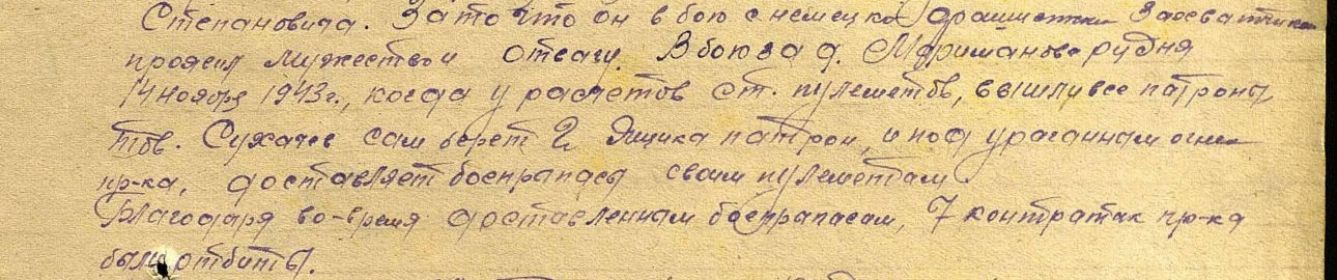 Степановича. За то что он в бою с немецко фашистким захватчикам
проявил мужество и отвагу. В бою за д. Маримонова рудня
14 ноября 1943г., когда у расчетов ст. пулеметов, вышли все патроны
тов. Сухачев сам берет 2 Ящика патрон, и под ураганным огнем
пр-ка, доставляет боеприпасы своим пулеметам.
Благодаря во-время доставленным боеприпасам, 7 контратак пр-ка
были отбиты.